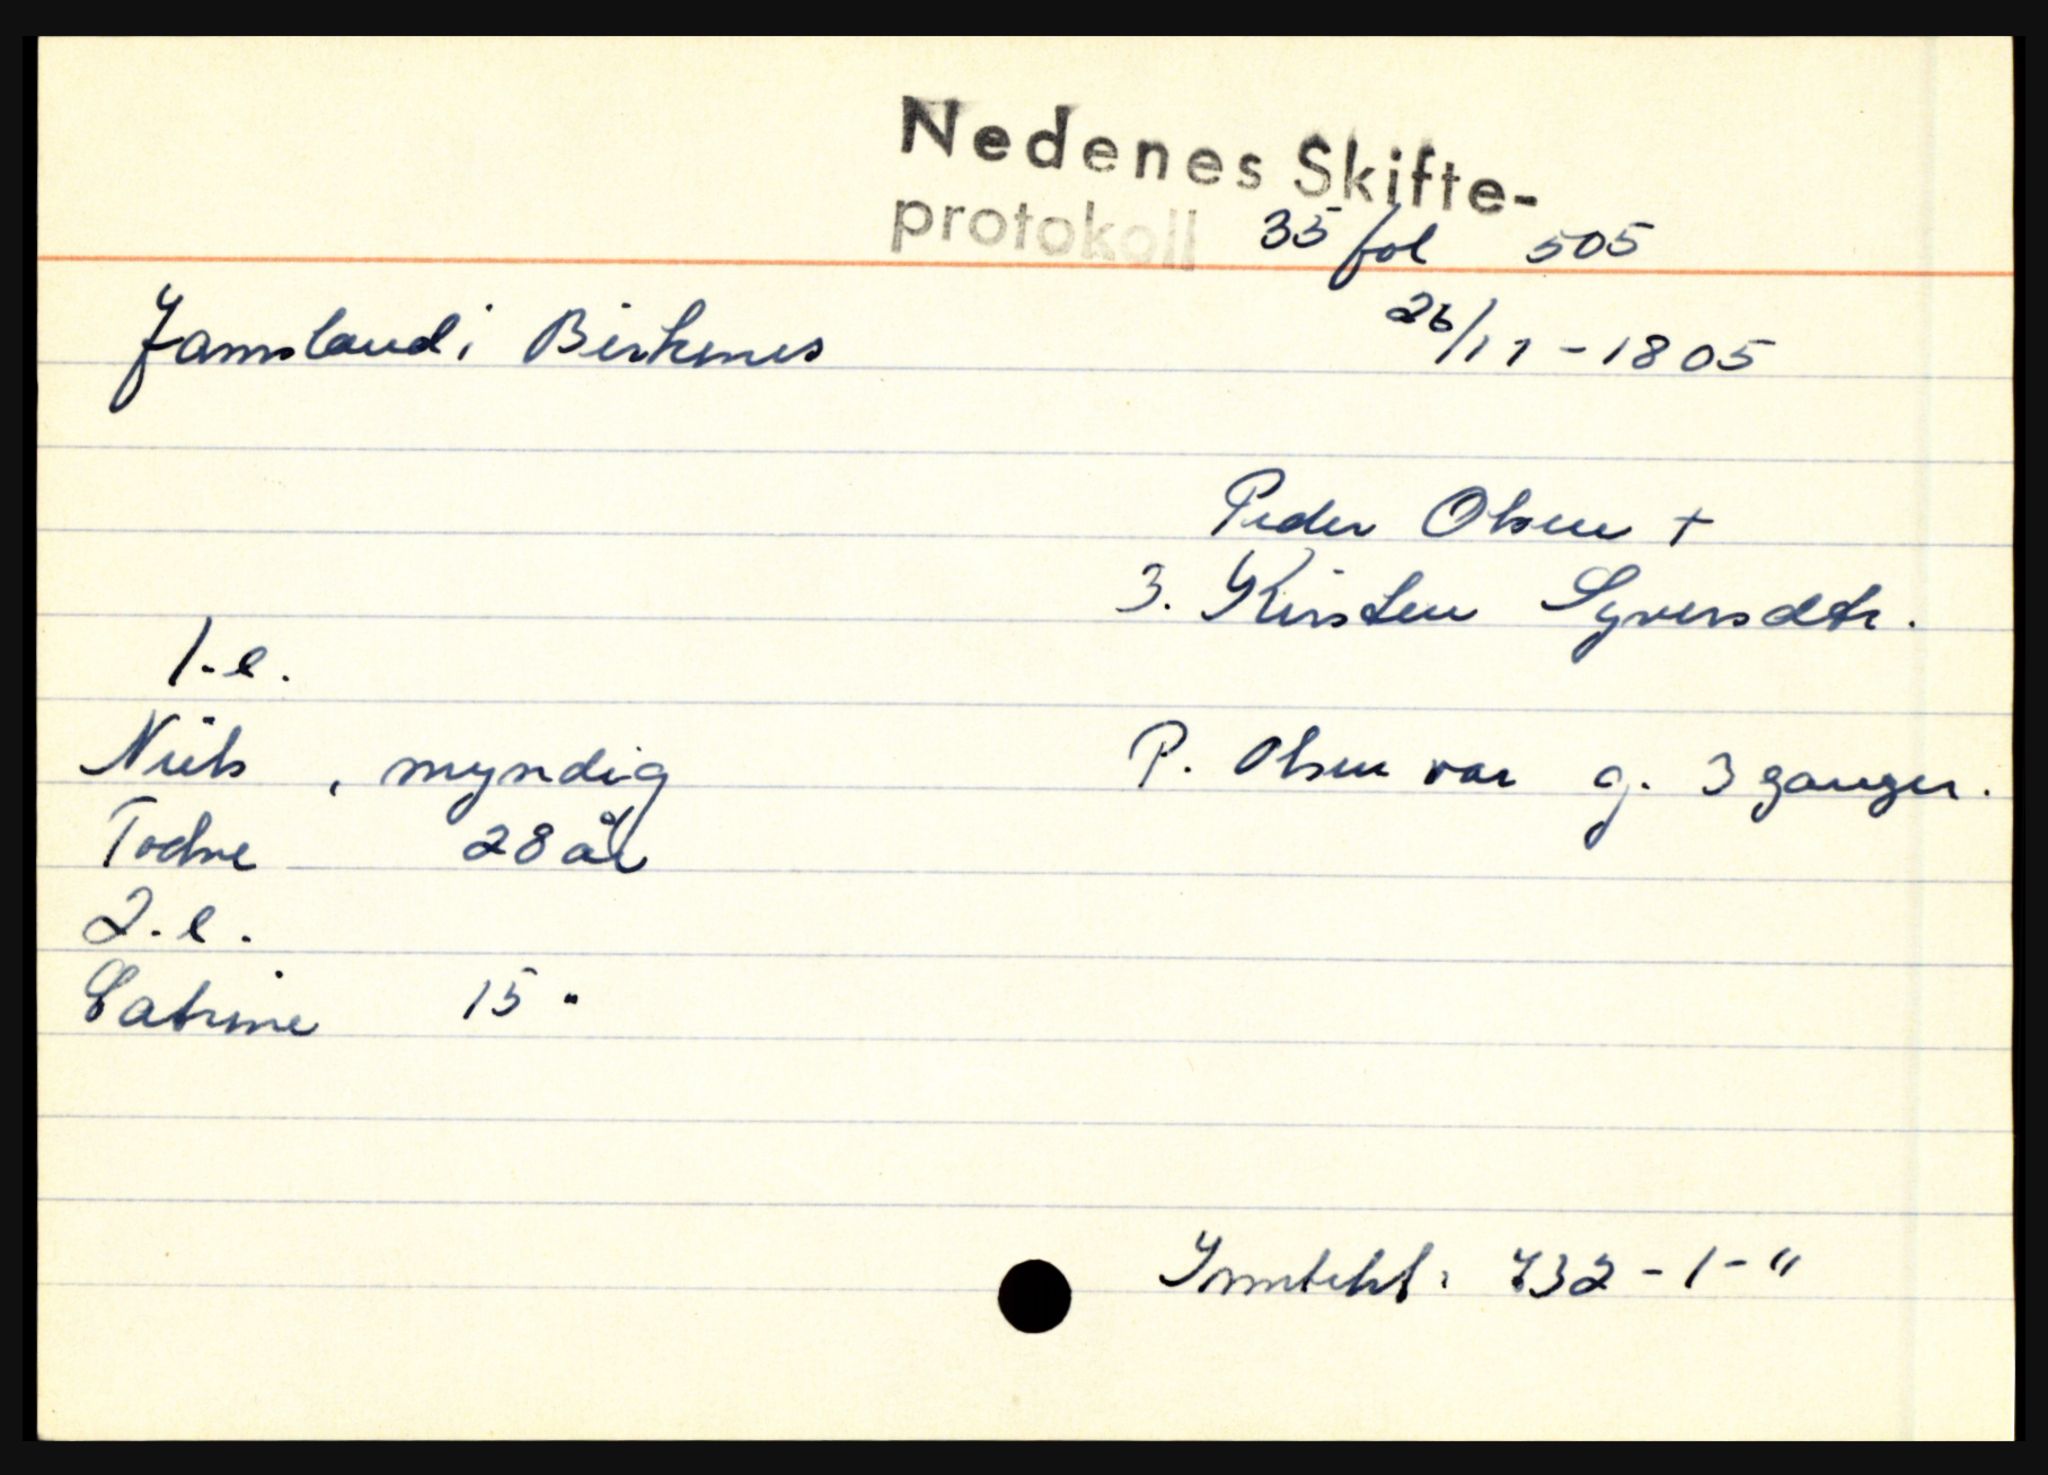 Nedenes Skifte-
protokoll 35 fol 505
Jamsland i Birkenes 26/11-1805
Peder Olsen +
3. Kirsten Syversdtr.
1.e.
Niels , myndig P. Olsen var g. 3 ganger.
Todne 28 år
2.e.
Catrine 15 "
Inntekt: 732-1-"